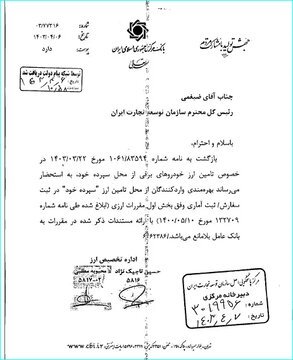 جهش تولید با مشارکت مردم
بانک مرکزی جمهوری اسلامی ایران
شماره: ۰۳/۷۷۳۱۶
تاریخ: ۱۴۰۳/۰۴/۰۶
پیوست: دارد
توسط شبکه پیام دولت دریافت شد
جناب آقای ضیغمی
رئیس کل محترم سازمان توسعه تجارت ایران
باسلام و احترام،
بازگشت به نامه شماره ۱۰۶۱/۸۳۵۹۴ مورخ ۱۴۰۳/۰۳/۲۲ در
خصوص تامین ارز خودروهای برقی از محل سپرده خود، به استحضار
می‌رساند بهره‌مندی واردکنندگان از محل تامین ارز "سپرده خود" در ثبت
سفارش/ ثبت آماری وفق بخش اول مقررات ارزی (ابلاغ شده طی نامه شماره
۱۳۲۷۰۹ مورخ ۱۴۰۰/۰۵/۱۰) با ارائه مستندات ذکر شده در مقررات به
بانک عامل بلامانع می‌باشد./۶۶۲۳۸۶
اداره تخصیص ارز
حسین تاجیک نژاد
محبوبه
۵۸۱۶
۵۸۱۷-۰۲
مرکز بایگانی سازمان توسعه تجارت ایران
دبیرخانه مرکزی
شماره: ۳۰۱۹۹۵۶
تاریخ: ۱۴۰۳/۴/۷
www.cbi.ir